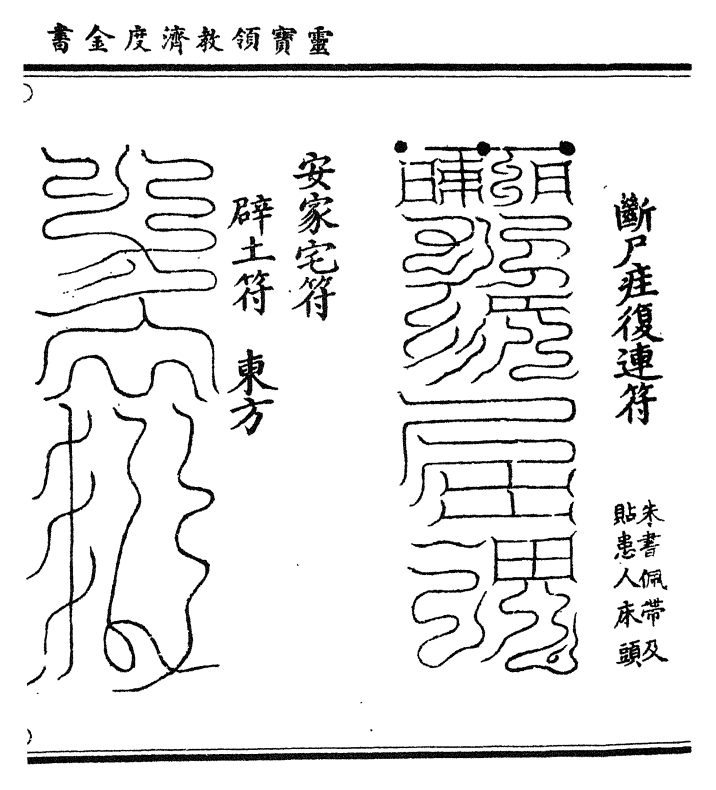 靈寶領教濟度金書
斷尸疰復連符
朱書佩帶及
貼患人床頭
安家宅符
辟土符 東方